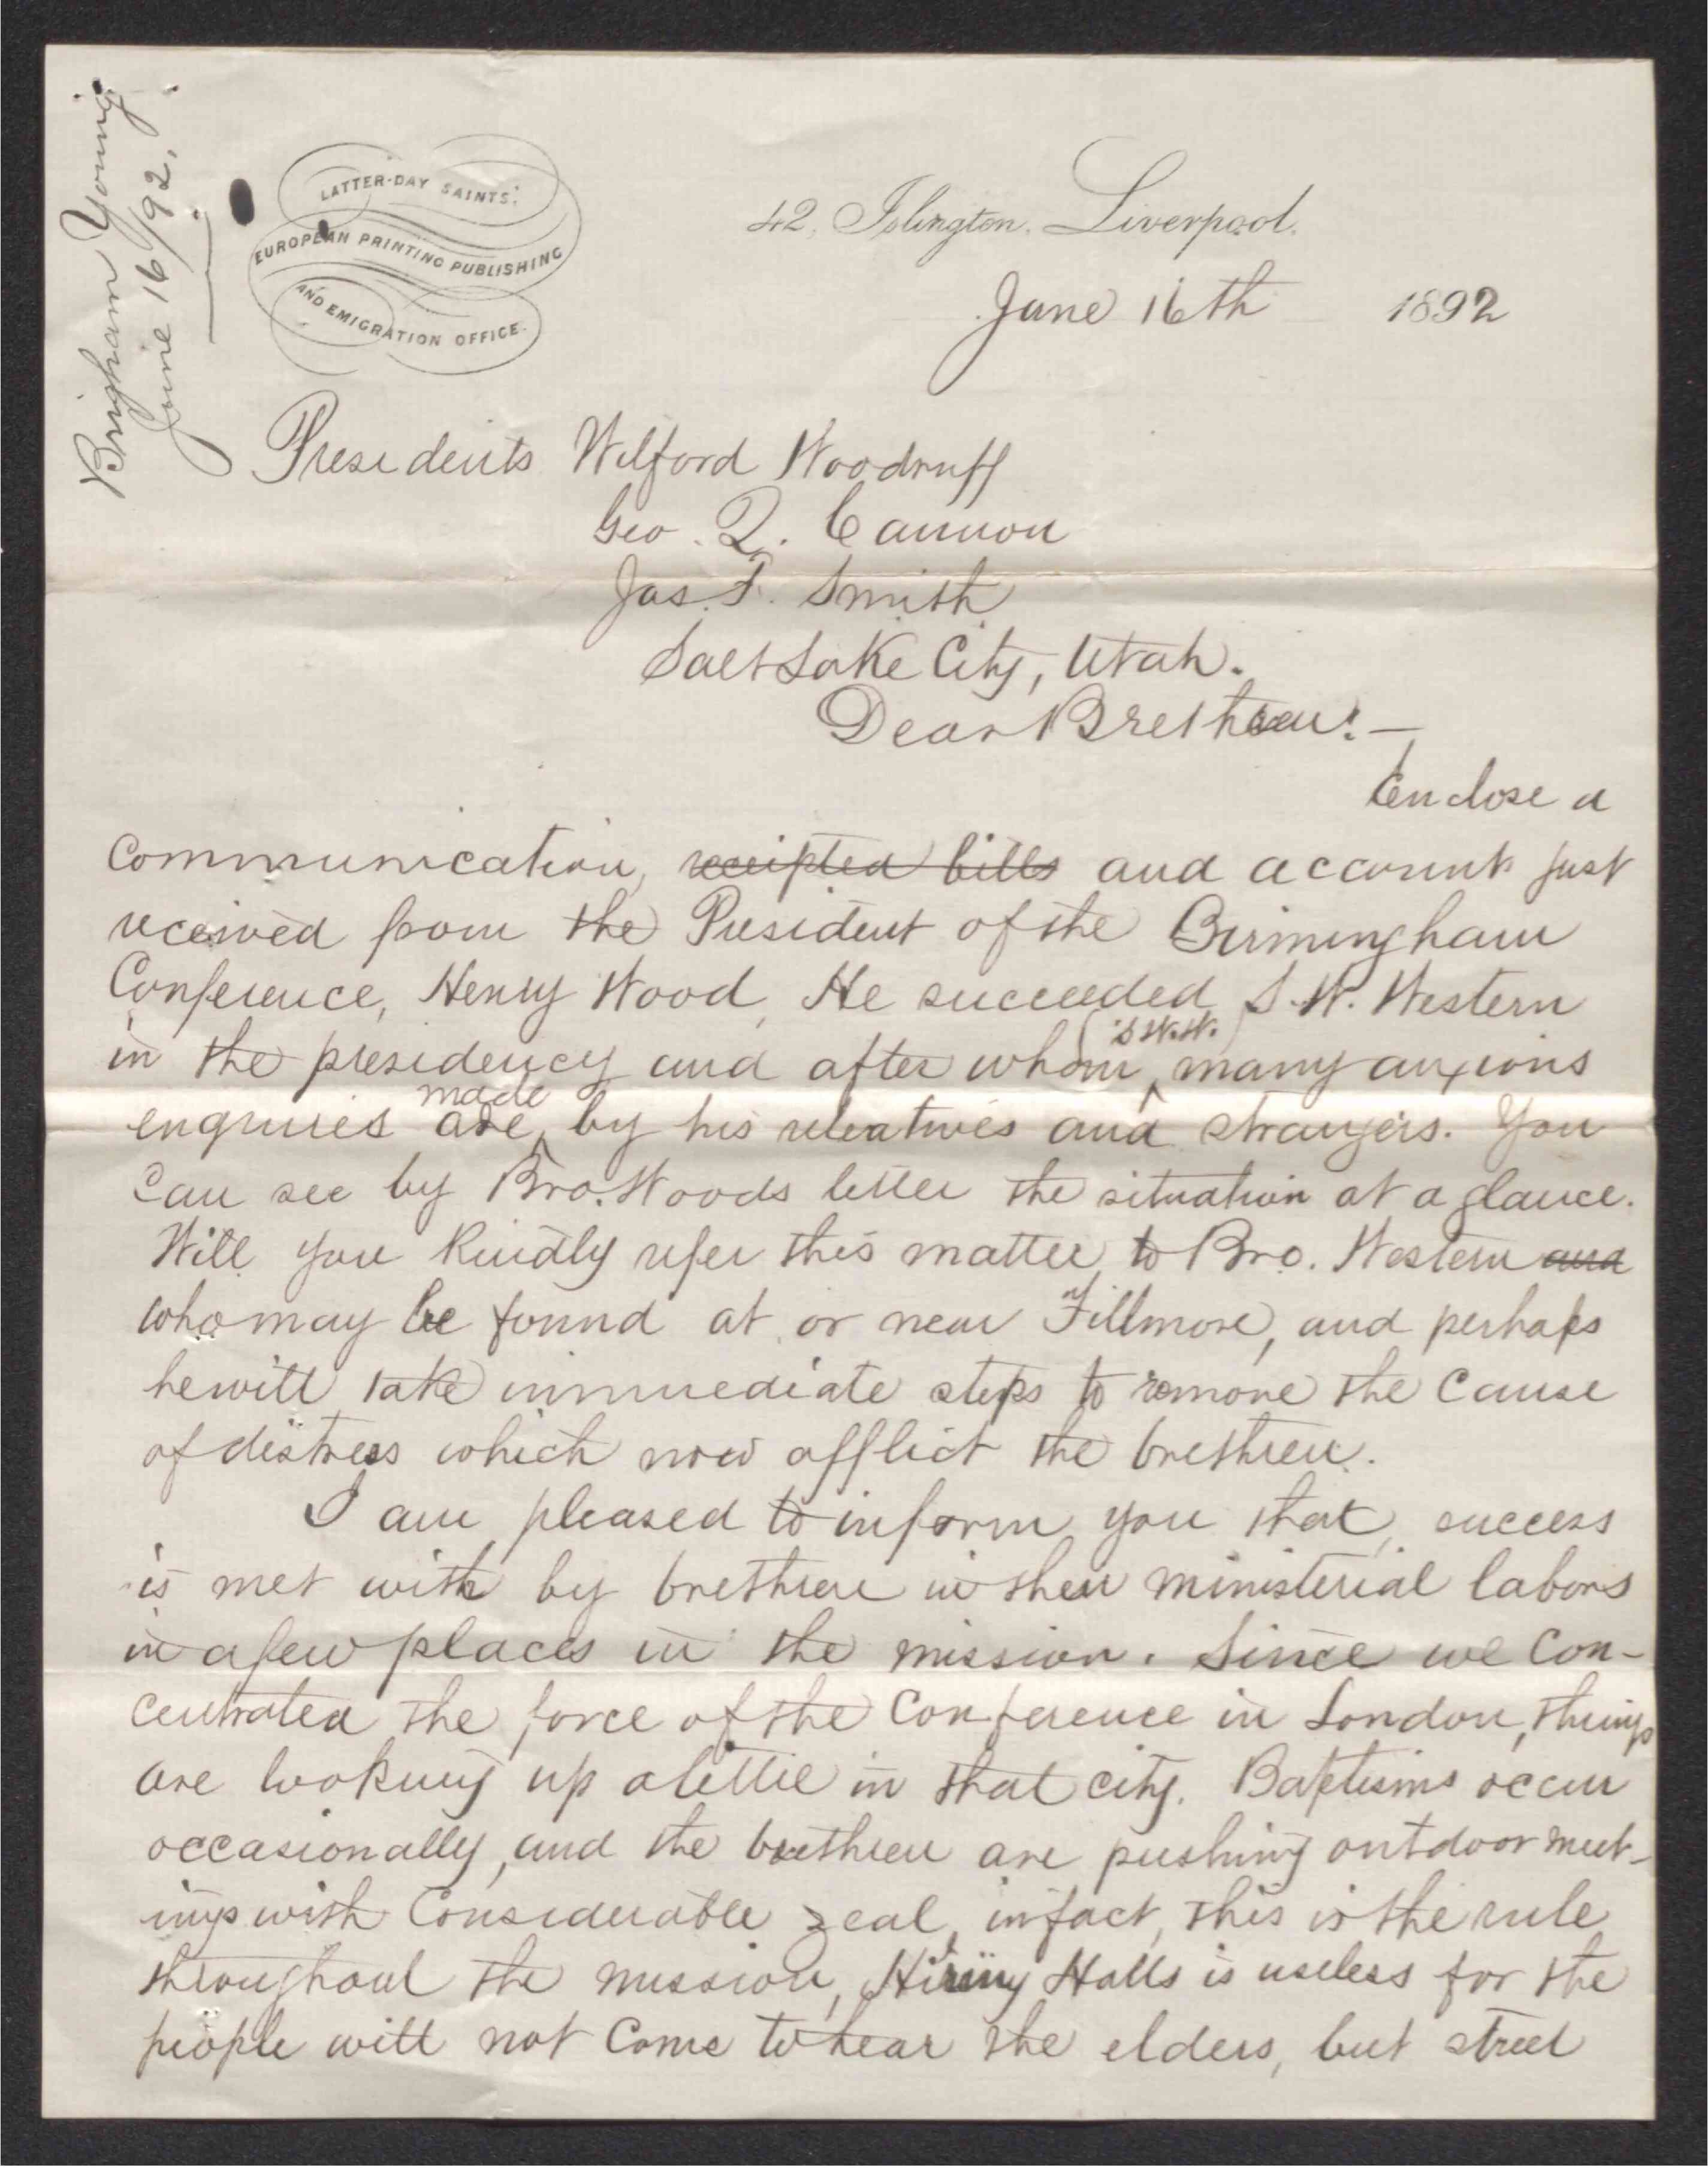 Brigham Young
June 16/92.
LATTER-DAY SAINTS'
EUROPEAN PRINTING PUBLISHING
AND EMIGRATION OFFICE.
42, Islington, Liverpool.
June 16th 1892
Presidents Wilford Woodruff
Geo. Q. Cannon
Jas. F. Smith
Salt Lake City, Utah.
Dear Brethren:—
Enclose a
communication, receipted bills and account just
received from the President of the Birmingham
Conference, Henry Wood, He succeeded S. W. Western
in the presidency and after whom (S.W.W.) many anxious
enquiries are made by his relatives and strangers. You
can see by Bro. Woods letter the situation at a glance.
Will you kindly refer this matter to Bro. Western and
who may be found at or near Fillmore, and perhaps
he will take immediate steps to remove the cause
of distress which now afflict the brethren.
I am pleased to inform you that success
is met with by brethren in their ministerial labors
in a few places in the mission. Since we con-
centrated the force of the Conference in London, things
are looking up a little in that city. Baptisms occur
occasionally, and the brethren are pushing outdoor meet-
ings with considerable zeal, in fact, this is the rule
throughout the mission, Hiring Halls is useless for the
people will not come to hear the elders, but street